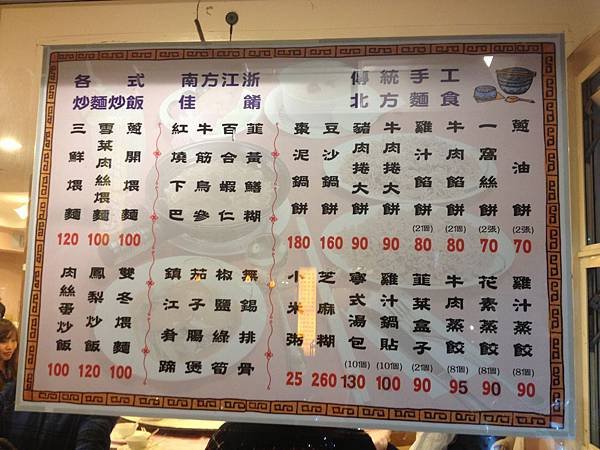 各式
炒麵炒飯
三鮮煨麵
120
雪菜肉絲煨麵
100
蔥開煨麵
100
肉絲蛋炒飯
100
鳳梨炒飯
120
雙冬煨麵
100
南方江浙
佳餚
紅燒下巴
牛筋烏參
百合蝦仁
韮黃鱔糊
鎮江肴蹄
茄子腸煲
椒鹽綠筍
無錫排骨
傳統手工
北方麵食
棗泥鍋餅
180
豆沙鍋餅
160
豬肉捲大餅
90
牛肉捲大餅
90
雞汁餡餅
(2個)
80
牛肉餡餅
(2個)
80
一窩絲餅
(2張)
70
蔥油餅
(2張)
70
小米粥
25
芝麻糊
260
寧式湯包
(10個)
130
雞汁鍋貼
(10個)
100
韮菜盒子
(2個)
90
牛肉蒸餃
(8個)
95
花素蒸餃
(8個)
90
雞汁蒸餃
(8個)
90